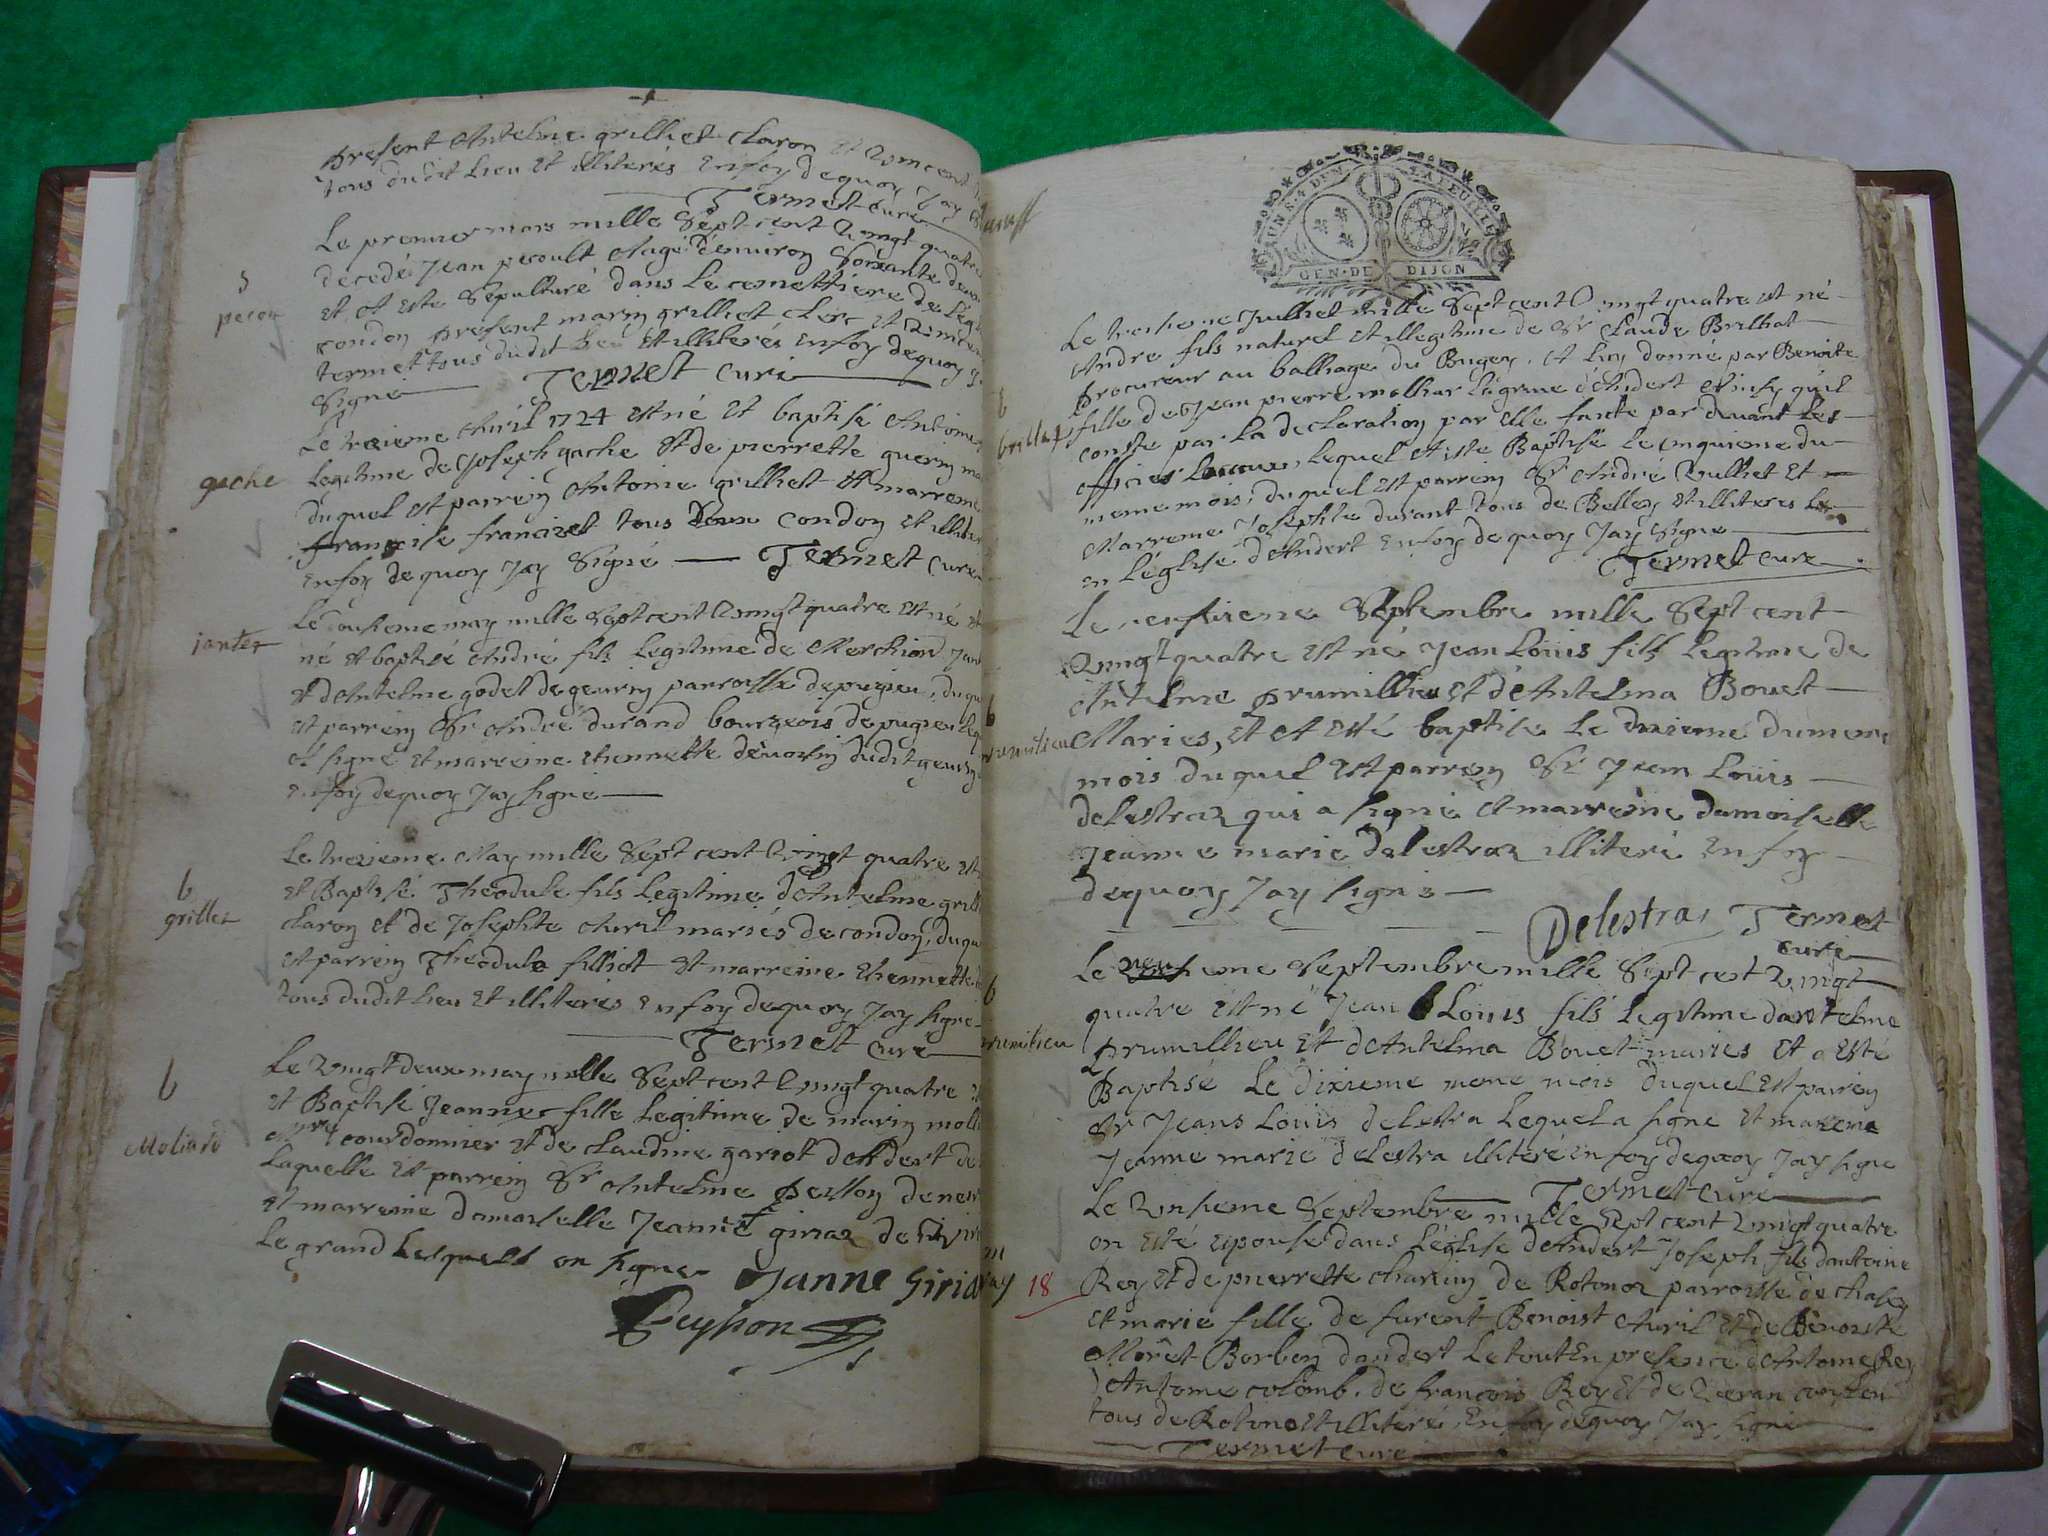 present Antelme grilliet claron et vincent
tous dudit lieu et illiterés enfoy dequoy Jay
Termet curé
Le premier mars mille Sept cent vingt quatre
decedé Jean pecoult Aagé denviron Soixante deux
et at este Sepulturé dans Le cemettiere de
condon present marin grilliet clerc et vincent
termet tous dudit lieu et illiterés enfoy dequoy
Signé Termet curé
pecou
Le treieme Avril 1724 est né et baptisé Antoine
Legitime de Joseph gache et de pierrette guerin
duquel est parrein Antoine grilliet et marreine
francoise francizet tous deux condon et
enfoy dequoy Jay Signé Termet curé
gache
Le may mille Sept cent vingt quatre est né
né et baptisé André fils Legitime de Merchion
et dAntelme godet de geurin parroisse depugieu, duquel
est parrein Sr André durand bourgeois de pugieu
at signé et marreine ethiennette devorsin dudit geurin
enfoy dequoy Jay signé
janter
Le treieme May mille Sept cent vingt quatre
et Baptisé Theodule fils Legitime dAntelme
claron et de Josephte Avril mariés de condon, duquel
est parrein Theodule filliot et marreine ethiennette
tous dudit lieu et illiteres enfoy dequoy Jay signé
Termet curé
b
grillet
Le vingt deux may mille Sept cent vingt quatre
et Baptisé fille Legitime de marin
courdonnier et de claudine gariot dAndert
Laquelle est parrein Sr Antelme peisson de
et marreine damoiselle Jeanne giriaz de
Le grand Lesquels on signe Janne Giria
Peysson
b
Moliard
UN S. 4 DEN. LA FEUILLE
GEN. DE DIJON
Le troisieme Julliet mille Sept cent vingt quatre est né
Andre fils naturel et illegitime de Sr Claude Brillat
procureur au balliage du Bugey. et luy donné par Benoite
fille de Jean pierre molliar dAndert Ainsy quil
conste par La declaration par elle faicte par devant Les
officies Lequel at este Baptisé Le cinquieme du
meme mois, duquel est parrein Sr André vulliet et
Marreine Josephte durant tous de Belley et illiteres
en Léglise dAndert enfoy de quoy Jay Signe
Termet curé
b
brillat
Le neufvieme Septembre mille Sept cent
vingt quatre est né Jean Louis fils Legitime de
Antelme prumillieu et dAntelma Bouet
Maries, et at esté baptise Le dixieme dumeme
mois duquel est parrein Sr Jean Louis
delestraz qui a signé et marreine damoiselle
Jeanne marie delestraz illiteré enfoy
dequoy Jay signé
Delestraz Termet
curé
b
Le Septembre mille Sept cent vingt
quatre est né Jean Louis fils Legitime dantelme
prumillieu et dAntelma Bouet maries et a esté
Baptisé Le dixieme meme mois duquel est parrein
Sr Jeans Louis delestra Lequel a signe et mareine
Jeanne marie delestra illiteré enfoy dequoy Jay signe
Termet curé
b
Le Septembre mille Sept cent vingt quatre
on esté epousé dans Léglise dAndert Joseph fils dantoine
Rey et de pierrette charvin de Rotonoz parroisse de
et marie fille de furent Benoist Avril et de Benoiste
Moret Borbon dandert Le tout En presence dAntoine Rey
dAntoine colomb. de francois Rey et de
tous de Rotono et illiteré Enfoy dequoy Jay signe
Termet curé
18